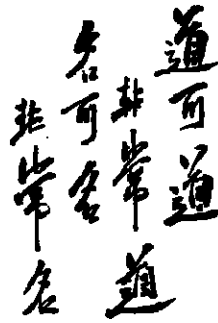 道可道
非常道
名可名
非常名